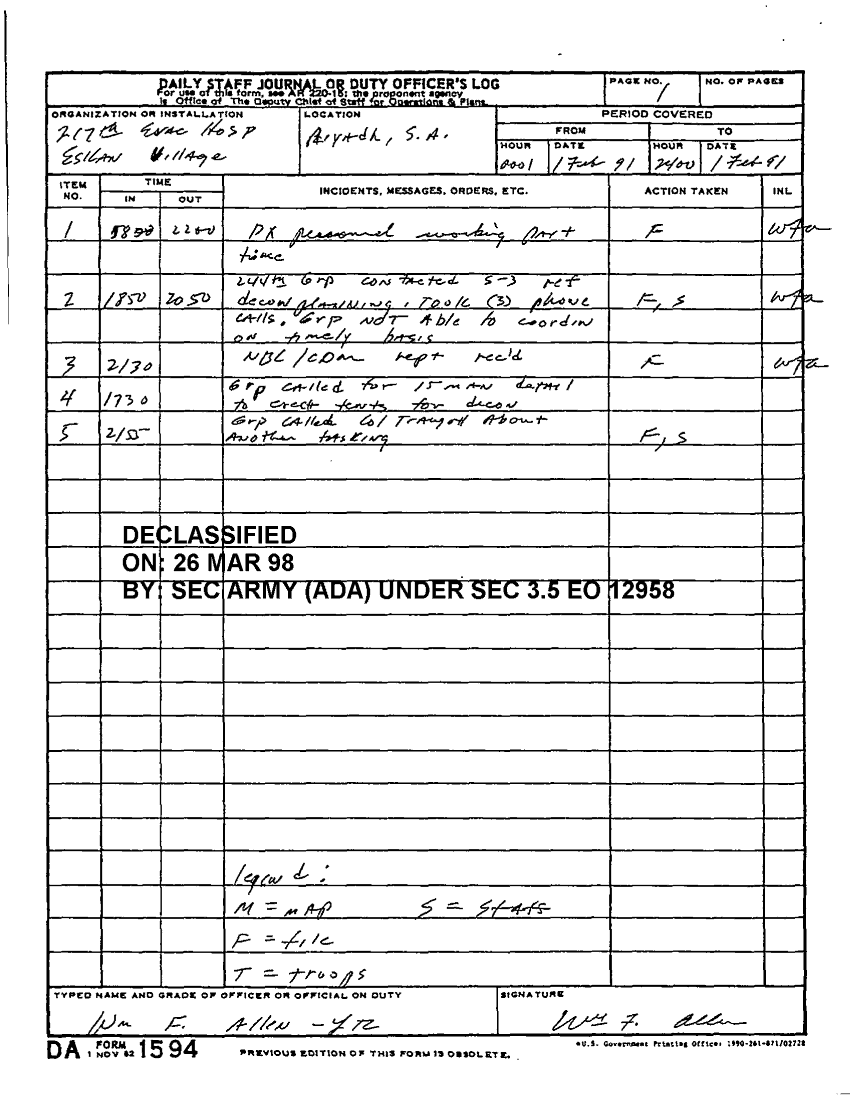 DAILY STAFF JOURNAL OR DUTY OFFICER'S LOG
For use of this form, see AR 220-15; the proponent agency
is Office of The Deputy Chief of Staff for Operations & Plans.
PAGE NO. 1
NO. OF PAGES
ORGANIZATION OR INSTALLATION
217th Evac Hosp
ESIKAN Village
LOCATION
Riyadh, S.A.
PERIOD COVERED
FROM TO
HOUR DATE HOUR DATE
0001 1 Feb 91 2400 1 Feb 91
ITEM NO. TIME INCIDENTS, MESSAGES, ORDERS, ETC. ACTION TAKEN INL
IN OUT
1 2200 PX personnel working part F wfa
time
244th Grp contacted S-3 ref
2 1850 2050 decon planning. Took (3) phone F, S wfa
calls. Grp NOT Able to coordin
on timely basis
3 2130 NBC/CDM rept rec'd F wfa
Grp called for 15 man detail
4 1730 to erect tents for decon
Grp called Col About
5 2155 Another tasking F, S
DECLASSIFIED
ON: 26 MAR 98
BY: SEC ARMY (ADA) UNDER SEC 3.5 EO 12958
legend:
M = mAP S = Staff
F = file
T = troops
TYPED NAME AND GRADE OF OFFICER OR OFFICIAL ON DUTY
Wm F. Allen
SIGNATURE
Wm F. Allen
DA FORM 1 NOV 62 1594
PREVIOUS EDITION OF THIS FORM IS OBSOLETE.
*U.S. Government Printing Office: 1990-261-871/02728